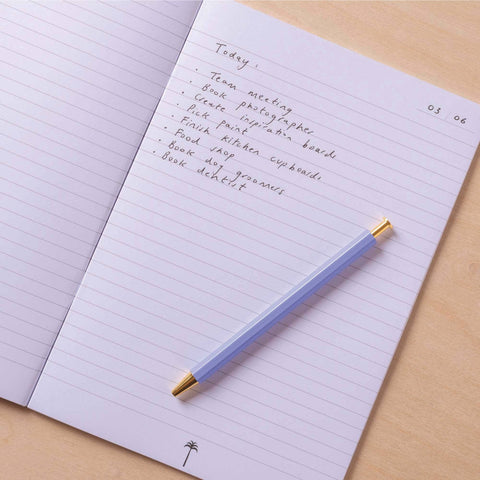 03 06
Today:
• Team meeting
• Book photographer
• Create inspiration boards
• Pick paint
• Finish kitchen cupboards
• Food shop
• Book dog groomers
• Book dentist